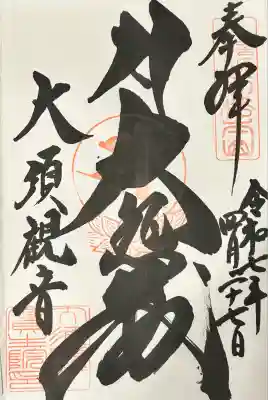 奉拝
令和七年
四月二十七日
大悲殿
大須観音